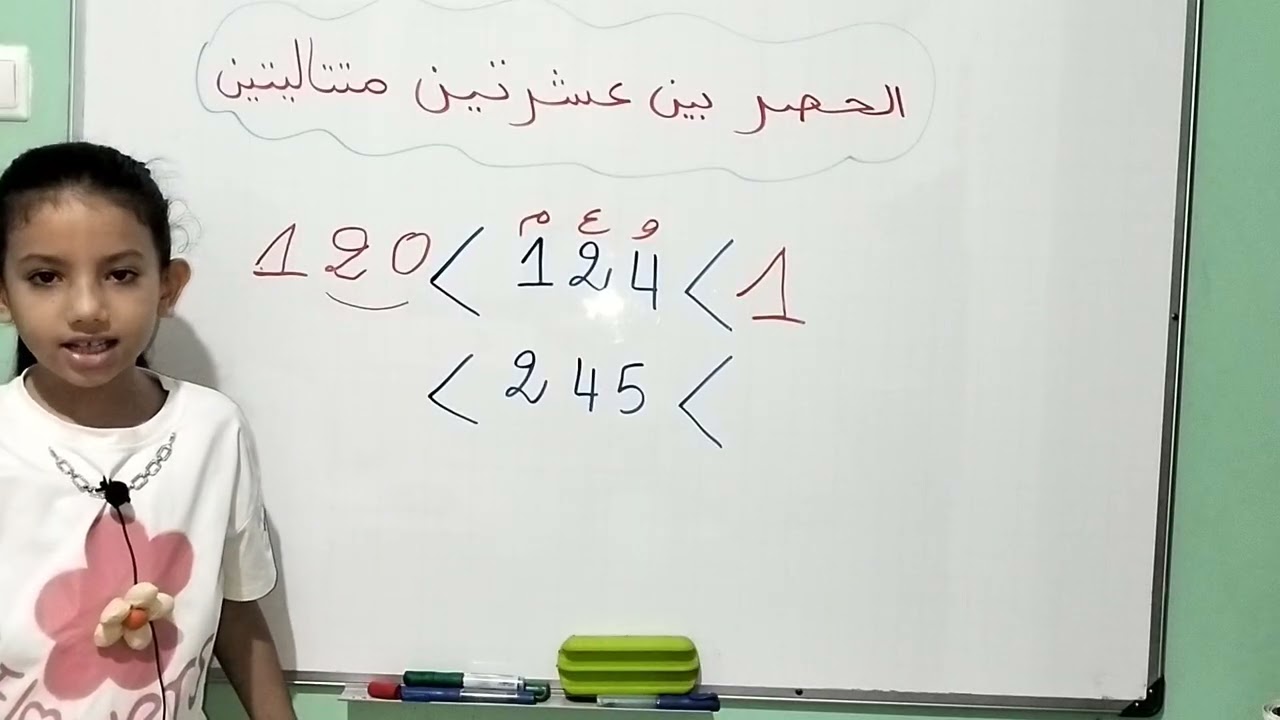 الحصر بين عشرتين متتاليتين
م ع و
120 < 124 < 1
< 245 <